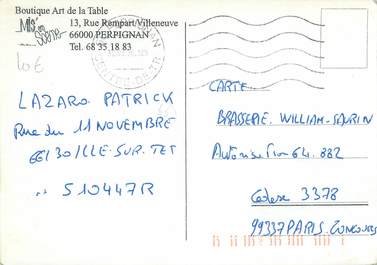 Boutique Art de la Table
13, Rue Rempart Villeneuve
66000 PERPIGNAN
Tel. 68 35 18 83
10€
LAZARO PATRICK
Rue du 11 NOVEMBRE
66130 ILLE-SUR-TET
510447R
CARTE
BRASSERIE. WILLIAM-SAURIN
Autorisation 64.882
Cedex 3378
99337 PARIS. CONCOURS